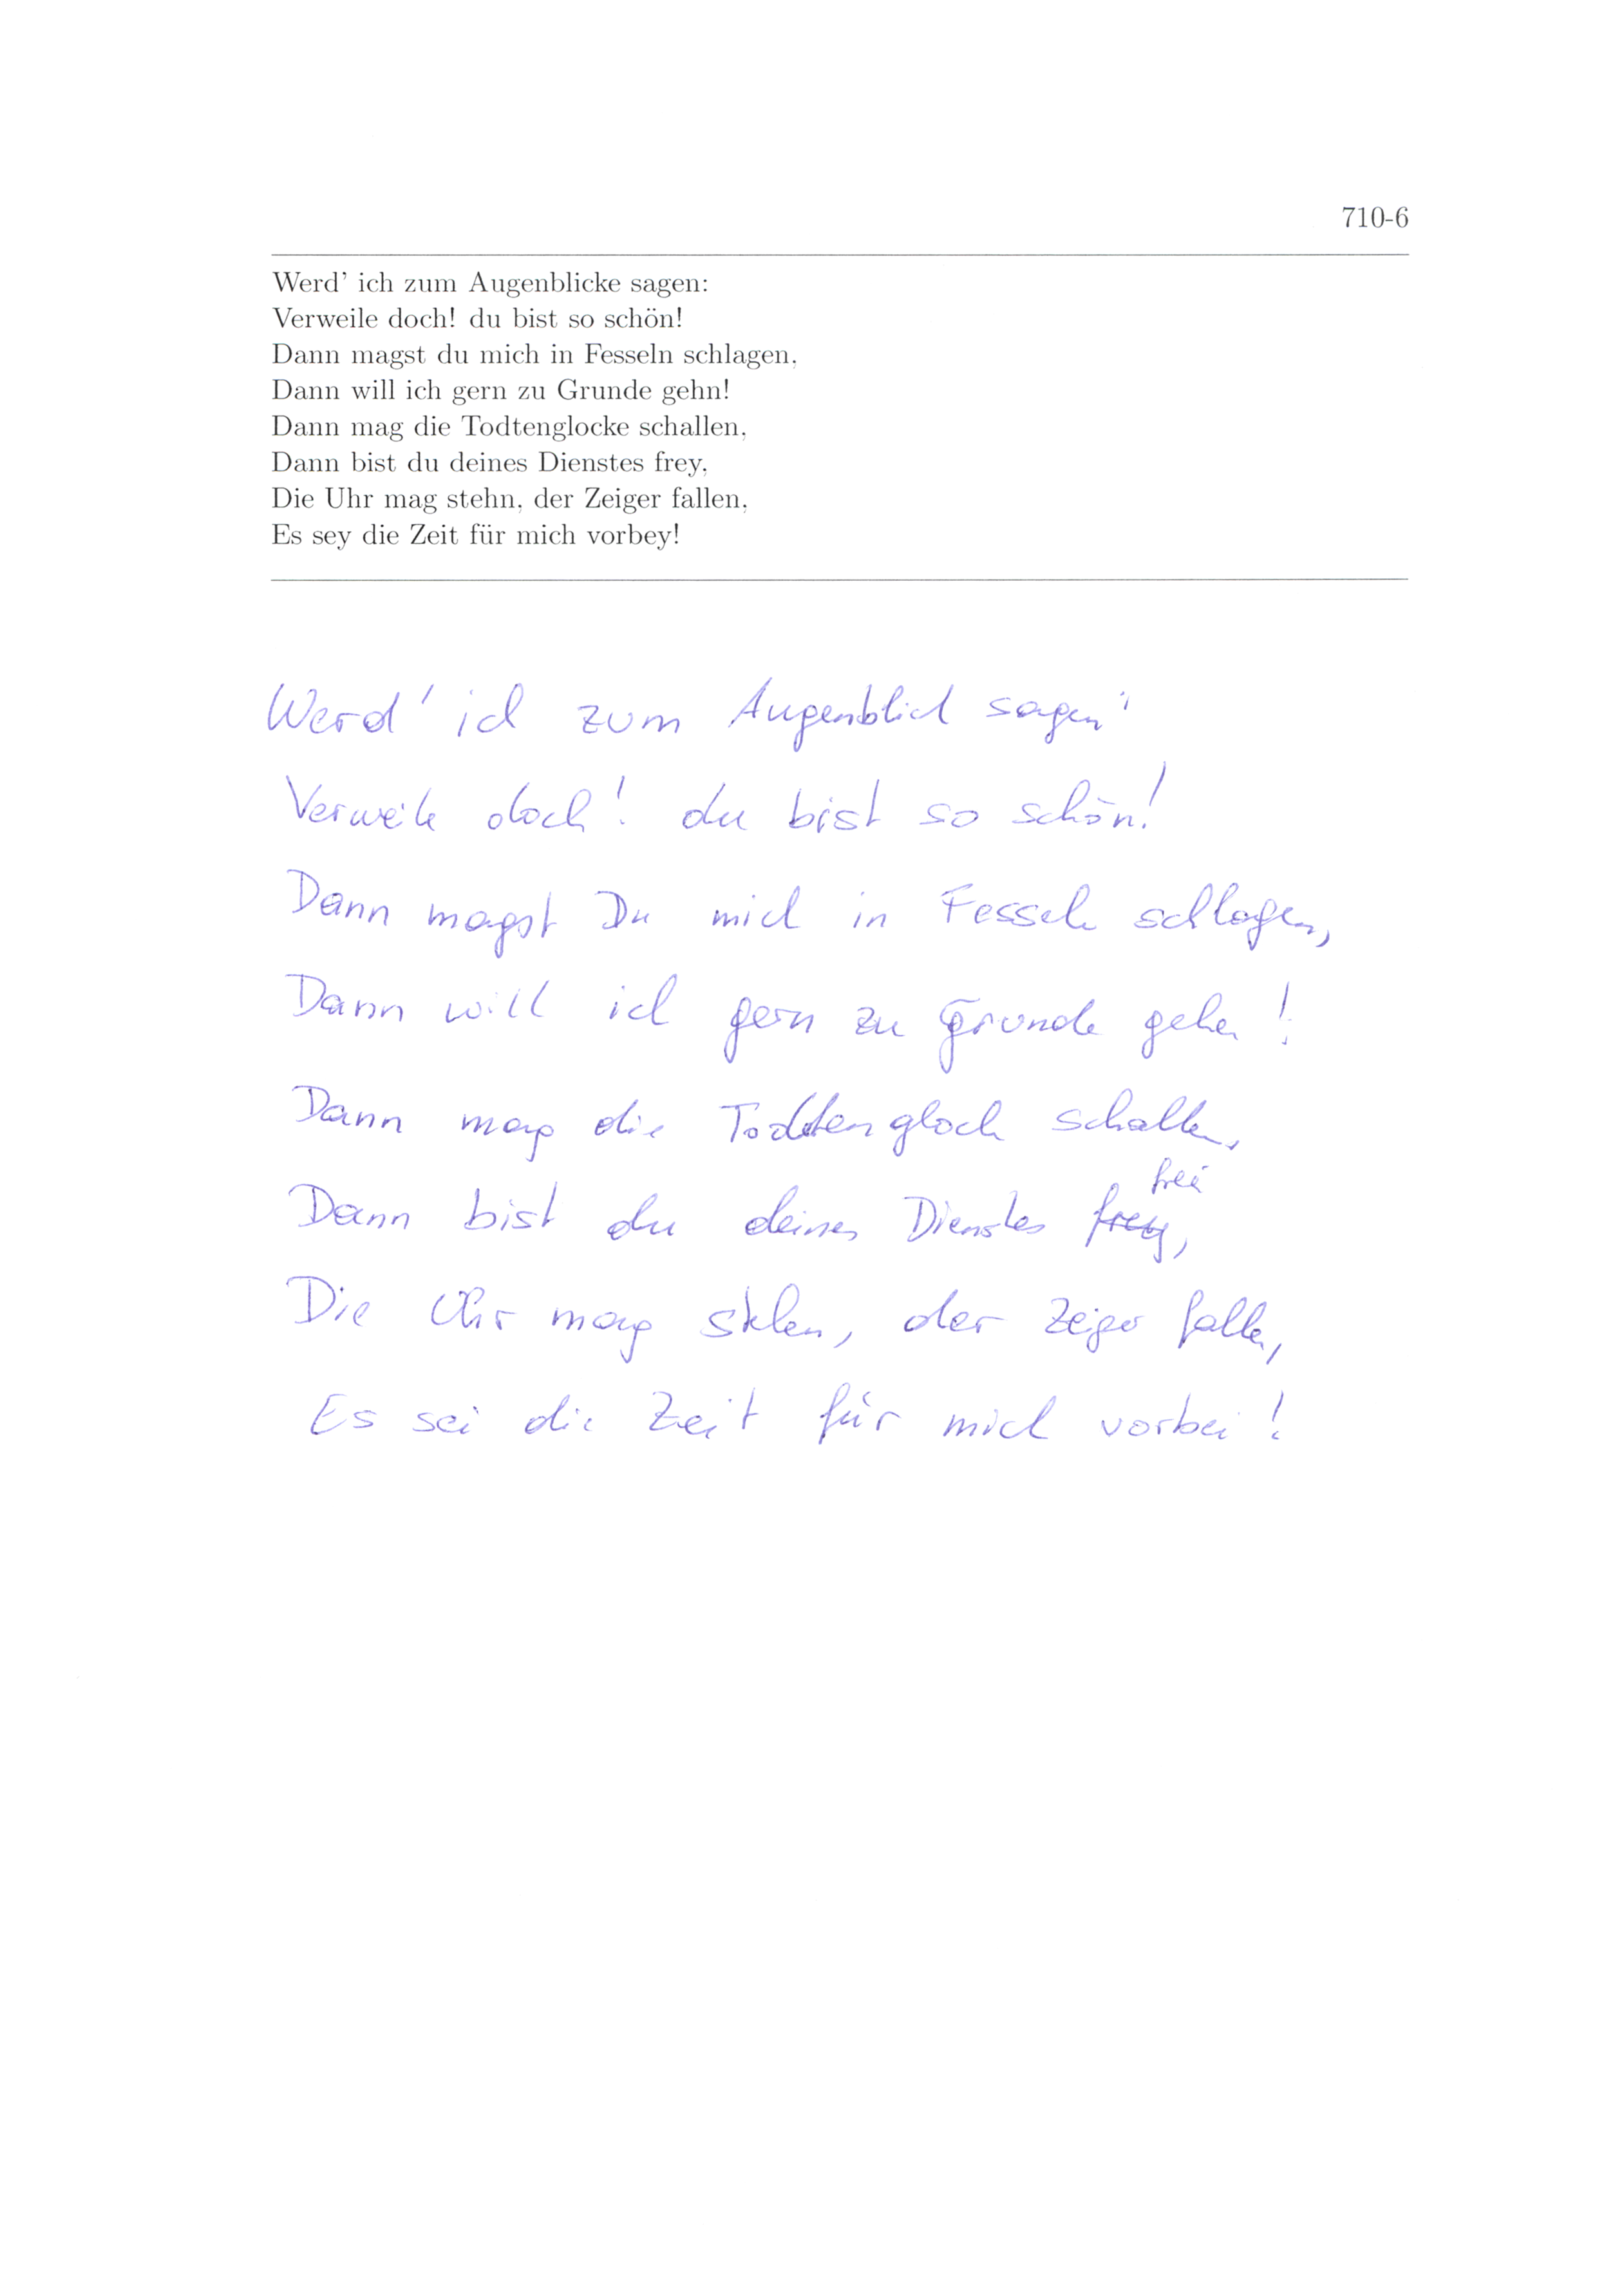 710-6
Werd' ich zum Augenblicke sagen:
Verweile doch! du bist so schön!
Dann magst du mich in Fesseln schlagen,
Dann will ich gern zu Grunde gehn!
Dann mag die Todtenglocke schallen,
Dann bist du deines Dienstes frey,
Die Uhr mag stehn, der Zeiger fallen,
Es sey die Zeit für mich vorbey!
Werd' ich zum Augenblick sagen:
Verweile doch! du bist so schön!
Dann magst Du mich in Fesseln schlagen,
Dann will ich gern zu Grunde gehen!
Dann mag die Todtenglocke schallen,
frei
Dann bist du deines Dienstes frey,
Die Uhr mag stehen, der Zeiger fallen,
Es sei die Zeit für mich vorbei!